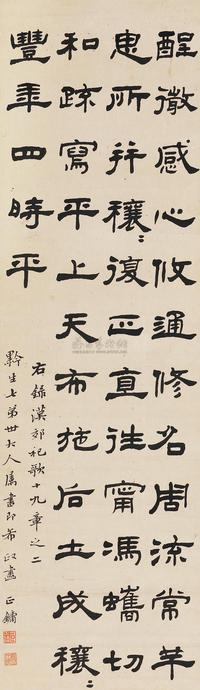 酲微感心攸通修名周流常羊
思所并穰〻復正直往甯馮蠵切
和疏寫平上天布施后土成穰〻
豐年四時平
右錄漢郊祀歌十九章之二
黔生七弟世大人属書即希政 正鏞